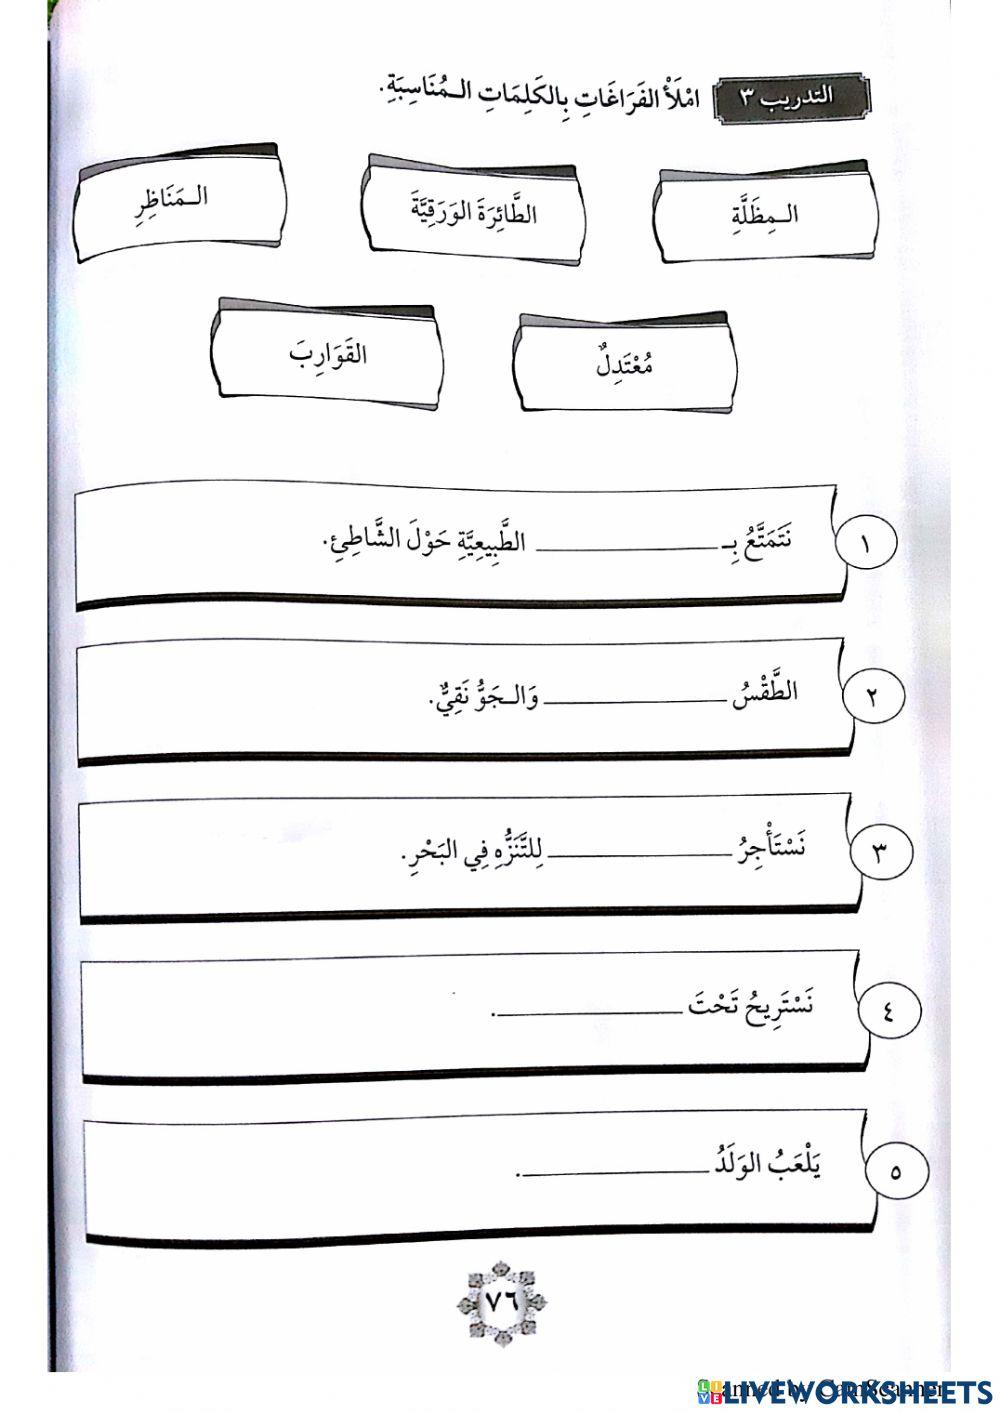 التدريب ٣ امْلَأْ الفَرَاغَاتِ بِالكَلِمَاتِ الـمُنَاسِبَةِ.
الـمِظَلَّةِ الطَّائِرَةَ الوَرَقِيَّةَ الـمَنَاظِرِ
مُعْتَدِلٌ القَوَارِبَ
١ نَتَمَتَّعُ بِـ ________ الطَّبِيعِيَّةِ حَوْلَ الشَّاطِئِ.
٢ الطَّقْسُ ________ وَالـجَوُّ نَقِيٌّ.
٣ نَسْتَأْجِرُ ________ لِلتَّنَزُّهِ فِي البَحْرِ.
٤ نَسْتَرِيحُ تَحْتَ ________.
٥ يَلْعَبُ الوَلَدُ ________.
٧٦
Scanned by CamScanner
LIVEWORKSHEETS